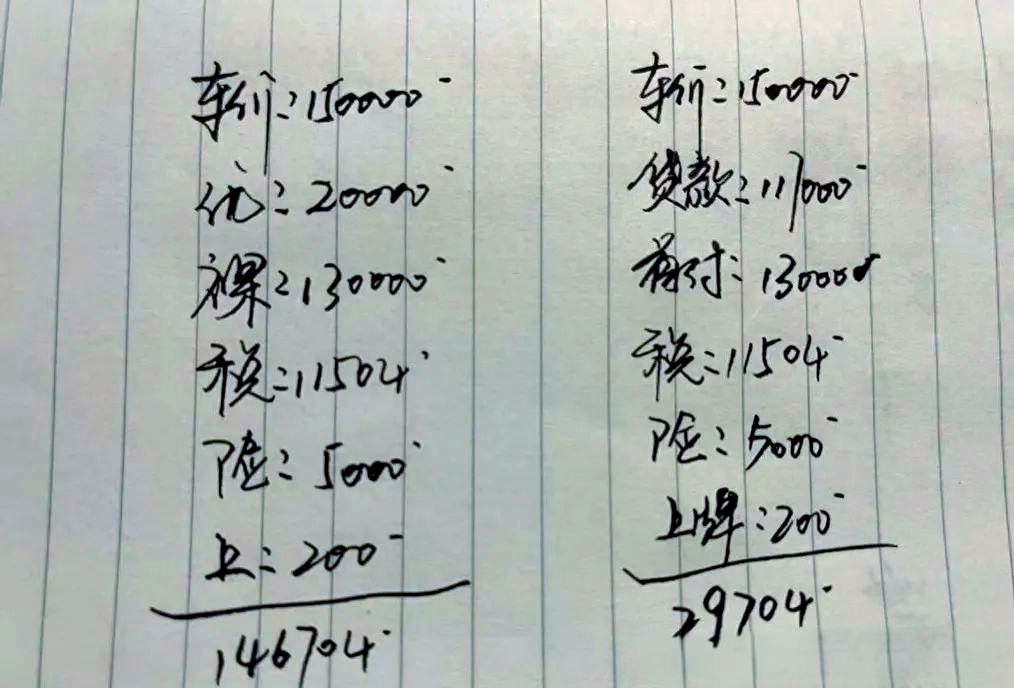 车价:150000
优:20000
裸:130000
税:11504
险:5000
上:200
146704
车价:150000
贷款:117000
首付:13000
税:11504
险:5000
上牌:200
29704